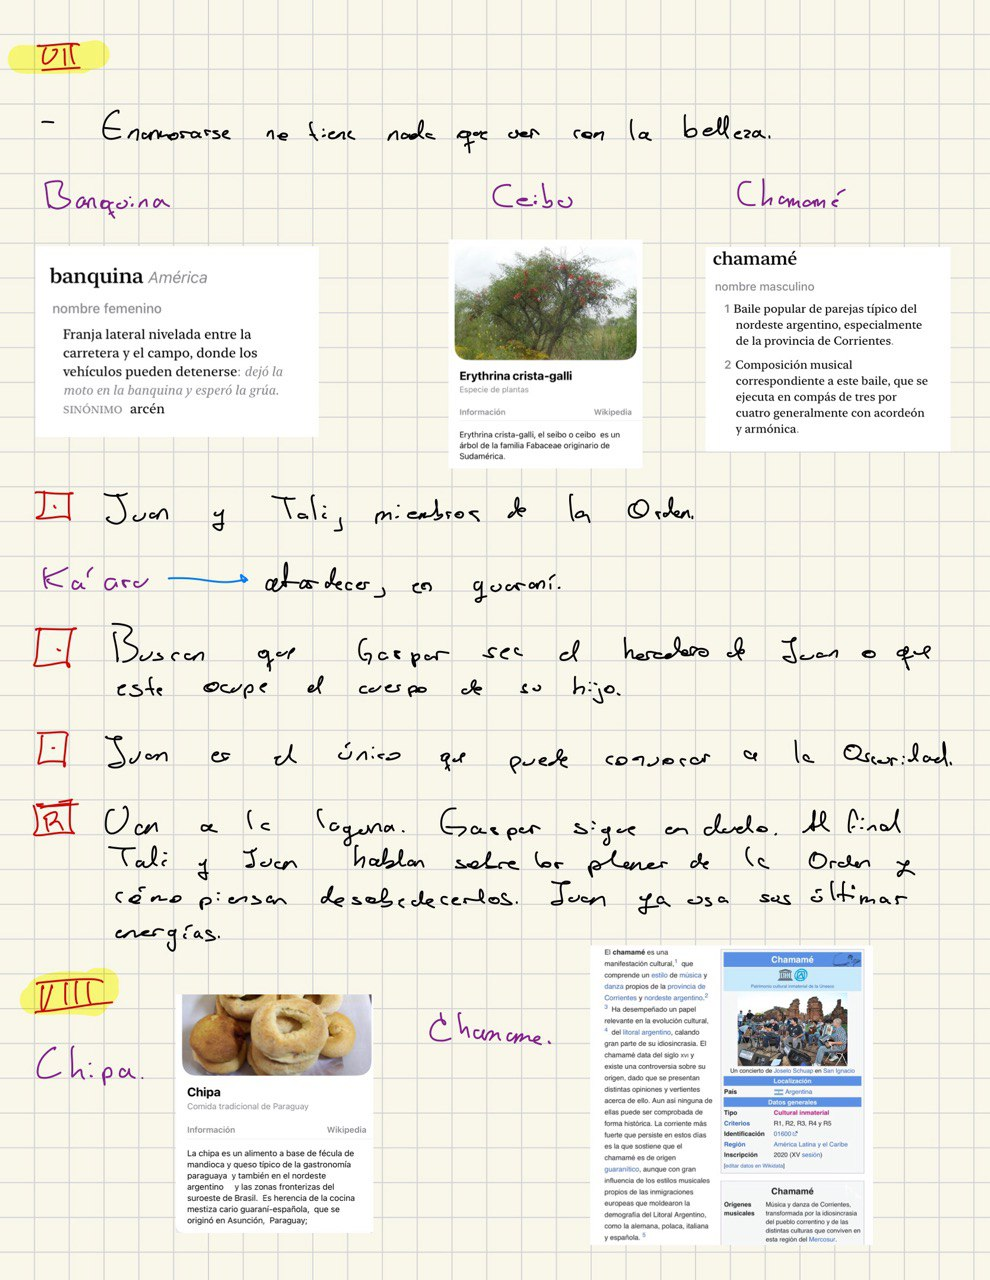 VII
- Enamorarse no tiene nada que ver con la belleza.
Banquina
Ceibo
Chamamé
banquina América
nombre femenino
Franja lateral nivelada entre la
carretera y el campo, donde los
vehículos pueden detenerse: dejó la
moto en la banquina y esperó la grúa.
SINÓNIMO arcén
Erythrina crista-galli
Especie de plantas
Información Wikipedia
Erythrina crista-galli, el seibo o ceibo es un
árbol de la familia Fabaceae originario de
Sudamérica.
chamamé
nombre masculino
1 Baile popular de parejas típico del
nordeste argentino, especialmente
de la provincia de Corrientes.
2 Composición musical
correspondiente a este baile, que se
ejecuta en compás de tres por
cuatro generalmente con acordeón
y armónica.
Juan y Tali, miembros de la Orden.
Ka'aru → atardecer, en guaraní.
Buscan que Gaspar sea el heredero de Juan o que
este ocupe el cuerpo de su hijo.
Juan es el único que puede convocar a la Oscuridad.
R Van a la laguna. Gaspar sigue en duelo. Al final
Tali y Juan hablan sobre los planes de la Orden y
cómo piensan desobedecerlos. Juan ya usa sus últimas
energías.
VIII
Chipa.
Chipa
Comida tradicional de Paraguay
Información Wikipedia
La chipa es un alimento a base de fécula de
mandioca y queso típico de la gastronomía
paraguaya y también en el nordeste
argentino y las zonas fronterizas del
suroeste de Brasil. Es herencia de la cocina
mestiza cario guaraní-española, que se
originó en Asunción, Paraguay;
Chamame.
El chamamé es una
manifestación cultural,1 que
comprende un estilo de música y
danza propios de la provincia de
Corrientes y nordeste argentino.2
3 Ha desempeñado un papel
relevante en la evolución cultural,
4 del litoral argentino, calando
gran parte de su idiosincrasia. El
chamamé data del siglo XVI y
existe una controversia sobre su
origen, dado que se presentan
distintas opiniones y vertientes
acerca de ello. Aun así ninguna de
ellas puede ser comprobada de
forma histórica. La corriente más
fuerte que persiste en estos días
es la que sostiene que el
chamamé es de origen
guaranítico, aunque con gran
influencia de los estilos musicales
propios de las inmigraciones
europeas que moldearon la
demografía del Litoral Argentino,
como la alemana, polaca, italiana
y española. 5
Chamamé
Patrimonio cultural inmaterial de la Unesco
Un concierto de Joselo Schuap en San Ignacio
Localización
País Argentina
Datos generales
Tipo Cultural inmaterial
Criterios R1, R2, R3, R4 y R5
Identificación 01600
Región América Latina y el Caribe
Inscripción 2020 (XV sesión)
[editar datos en Wikidata]
Chamamé
Orígenes musicales Música y danza de Corrientes,
transformada por la idiosincrasia
del pueblo correntino y de las
distintas culturas que conviven en
esta región del Mercosur.